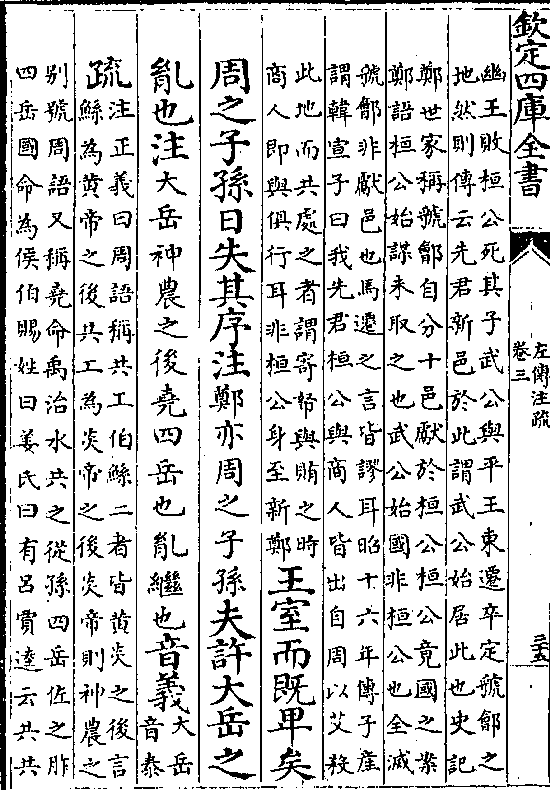 欽定四庫全書
左傳注疏
卷三
三五
幽王敗桓公死其子武公與平王東遷卒定虢鄶之
地然則傳云先君新邑於此謂武公始居此也史記
鄭世家稱虢鄶自分十邑獻於桓公桓公竟國之案
鄭語桓公始謀未取之也武公始國非桓公也全滅
虢鄶非獻邑也馬遷之言皆謬耳昭十六年傳子産
謂韓宣子曰我先君桓公與商人皆出自周以艾殺
此地而共處之者謂寄帑與賄之時
商人即與俱行耳非桓公身至新鄭
王室而既卑矣
周之子孫日失其序注鄭亦周之子孫夫許大岳之
亂也注大岳神農之後堯四岳也亂繼也音義大岳
音泰
疏注正義曰周語稱共工伯鯀二者皆黄炎之後言
鯀為黄帝之後共工為炎帝之後炎帝則神農之
别號周語又稱堯命禹治水共之從孫四岳佐之胙
四岳國命為侯伯賜姓曰姜氏曰有呂賈逵云共共